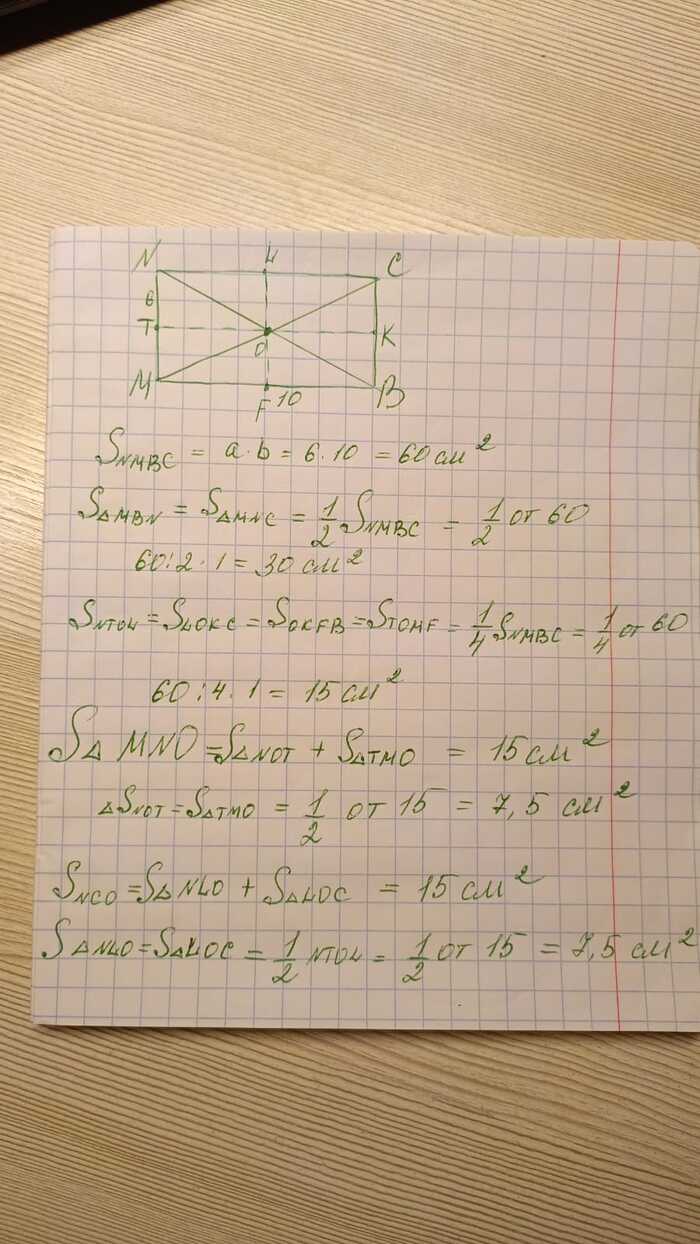 N L C
6
T O K
M F 10 B
S NMBC = a·b = 6·10 = 60 см²
S△MBN = S△MNC = 1/2 S NMBC = 1/2 от 60
60:2·1 = 30 см²
S NTOL = S LOKC = S OKFB = S TOMF = 1/4 S NMBC = 1/4 от 60
60:4·1 = 15 см²
S△MNO = S△NOT + S△TMO = 15 см²
△S NOT = S△TMO = 1/2 от 15 = 7,5 см²
S NCO = S△NLO + S△LOC = 15 см²
S△NLO = S△LOC = 1/2 NTOL = 1/2 от 15 = 7,5 см²